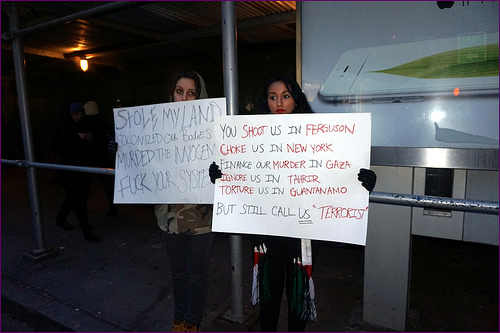 STOLE MY LAND
COLONIZED OUR BODIES
MURDERED THE INNOCEN
FUCK YOUR SYSTE
YOU SHOOT US IN FERGUSON
CHOKE US IN NEW YORK
FINANCE OUR MURDER IN GAZA
IGNORE US IN TAHRIR
TORTURE US IN GUANTANAMO
BUT STILL CALL US "TERRORIST"